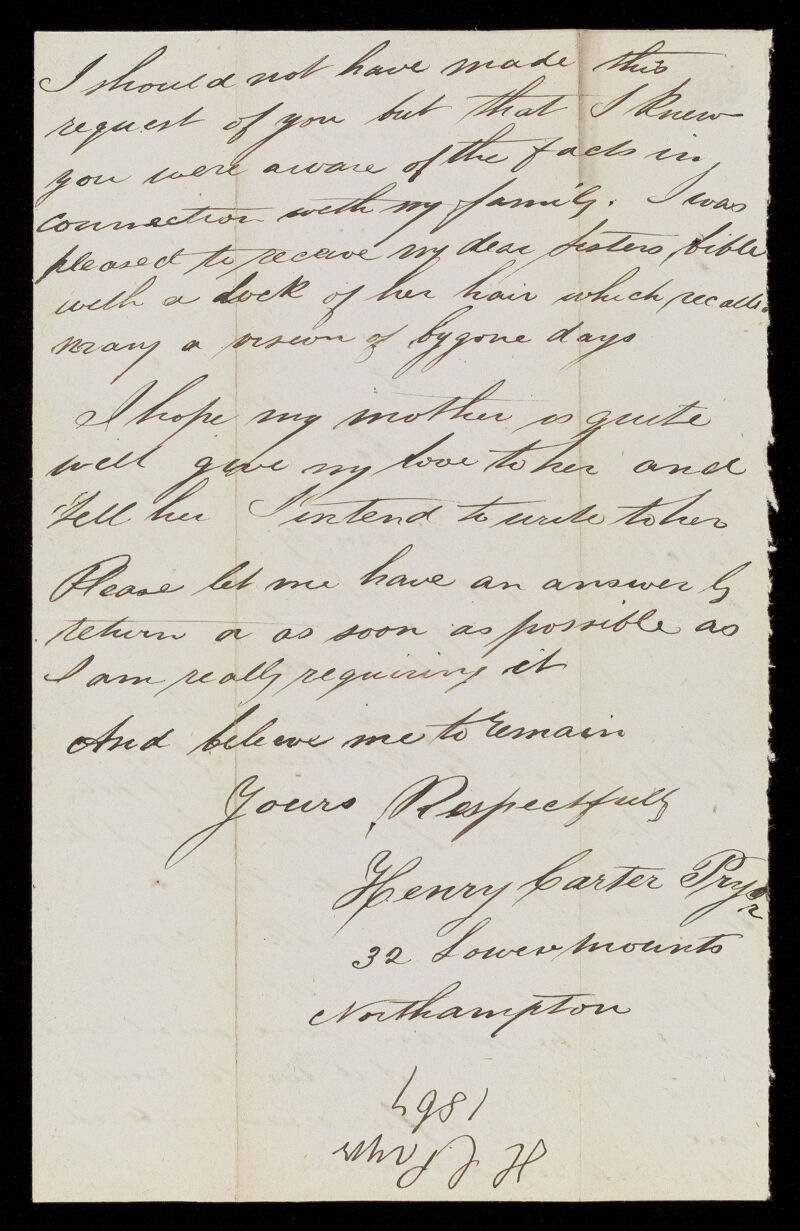 I should not have made this
request of you but that I knew
you were aware of the facts in
connection with my family. I was
pleased to receive my dear sisters bible
with a lock of her hair which recalls
many a vision of bygone days
I hope my mother is quite
well give my love to her and
tell her I intend to write to her
Please let me have an answer by
return or as soon as possible as
I am really requiring it
And believe me to remain
Yours Respectfully
Henry Carter Pryor
32 Lower Mounts
Northampton
H C Pryor
1867